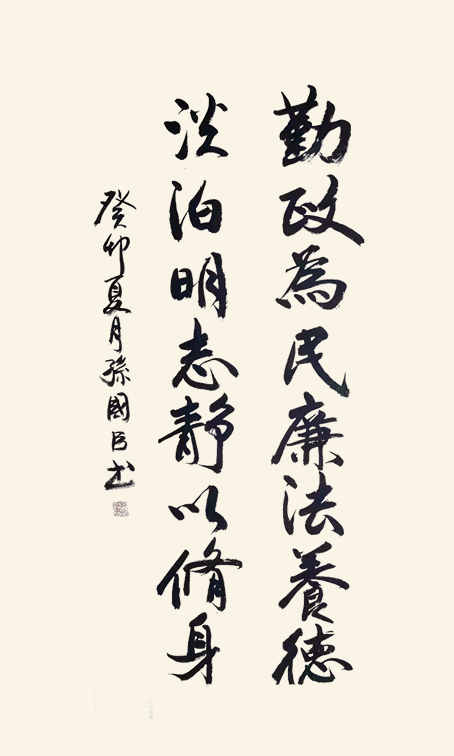 勤政為民廉法養德
淡泊明志静以脩身
癸卯夏月孫國臣书